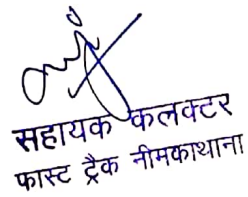 सहायक कलक्टर
फास्ट ट्रैक नीमकाथाना